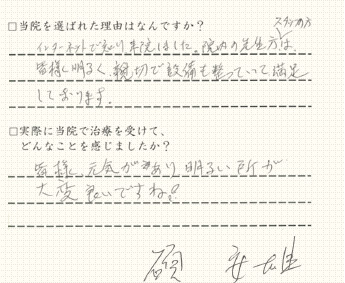 □当院を選ばれた理由はなんですか？
スタッフの方
インターネットで知り来院しました。院内の先生方は、
皆様、明るく、親切で設備も整っていて満足
しております。
□実際に当院で治療を受けて、
どんなことを感じましたか？
皆様、元気があり明るい所が
大変良いですね!
雄